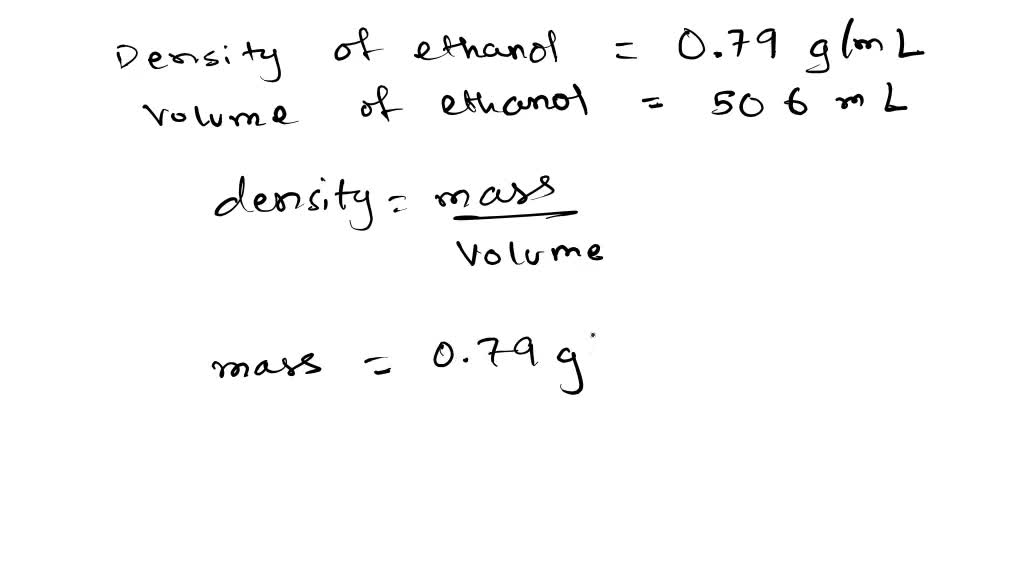 Density of ethanol = 0.79 g/mL
Volume of ethanol = 506 mL
density = mass
volume
mass = 0.79 g